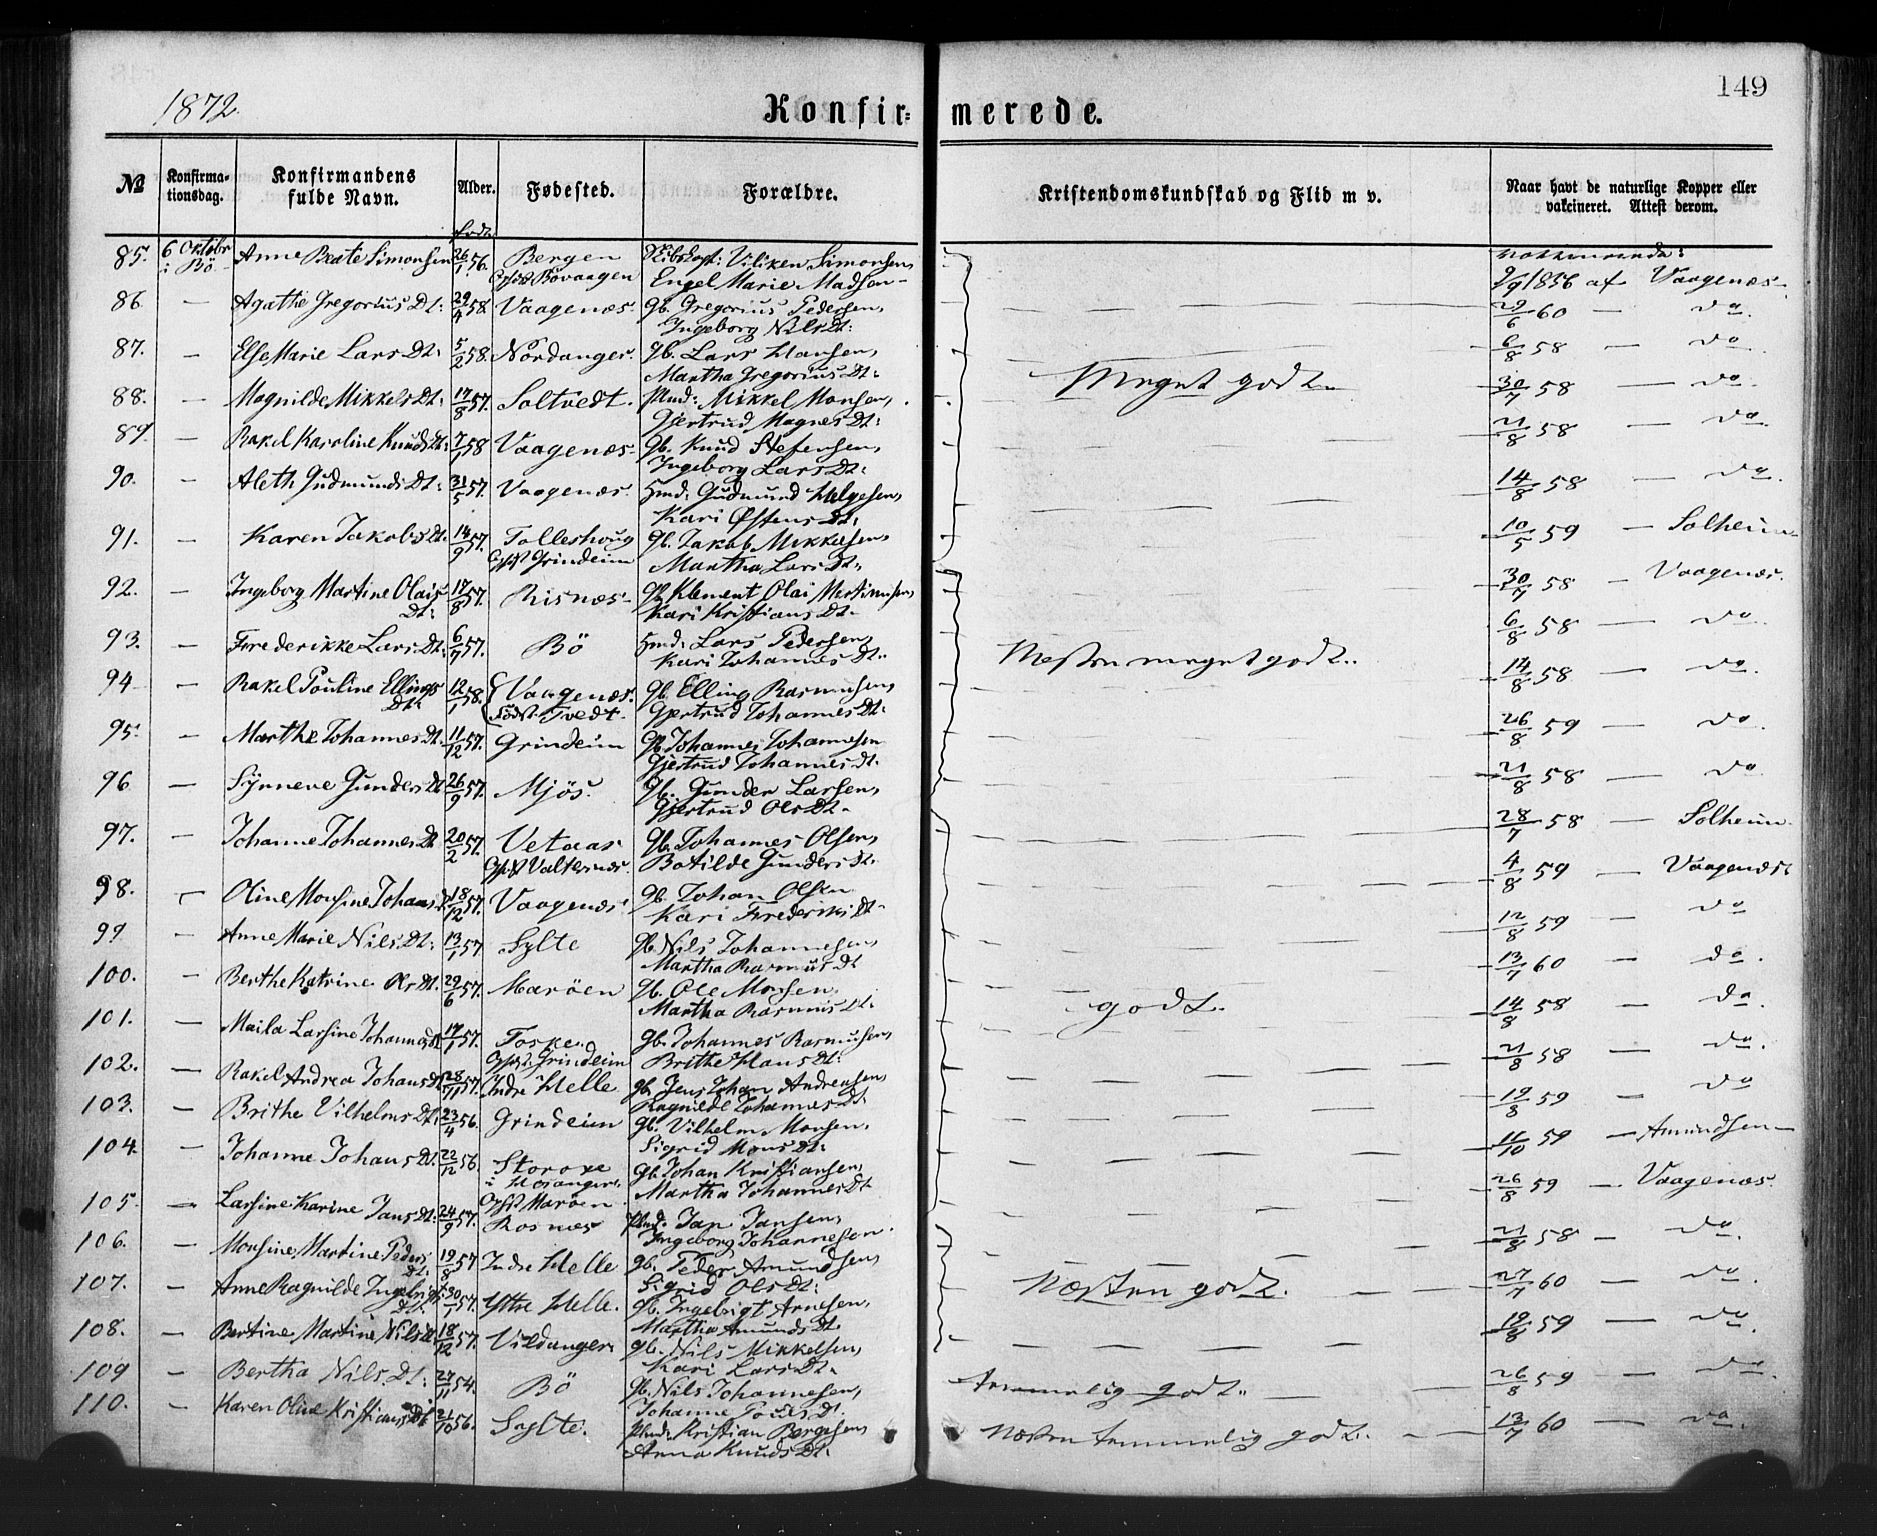 149
1872.
Konfir= merede.
№ Konfirma=tionsdag. Konfirmandens fulde Navn. Alder. Fødested. Forældre. Kristendomskundskab og Flid m v. Naar havt de naturlige Kopper eller vakcineret. Attest derom.
født
85. 6 Oktobr i Bö Anne Beate Simonsen 26/1 56. Bergen Skibskapt: Viliken Simonsen,
Bovaagen Engel Marie Madsen 1856 af Vaagenæs
86 — Agathe Gregorius Dt: 29/4 58 Vaagenæs. gb. Gregorius Pedersen, 29/6 60 — do.
Ingeborg Nils Dt:
87. — Else Marie Lars Dt: 5/2 58. Nordanger. gb. Lars Hansen, 6/8 58 — do.
Martha Gregorius Dt:
88. — Magnilde Mikkels Dt: 17/8 57. Soltvedt. Plmd: Mikkel Monsen, Meget godt. 30/7 58 — do.
Gjertrud Magnes Dt:
89. — Rakel Karoline Knuds Dt: 7/1 58 Vaagenæs gb. Knud Stefensen, 21/8 58 — do.
Ingeborg Lars Dt:
90. — Aleth Gudmunds Dt: 31/5 57. Vaagenæs. Hmd: Gudmund Helgesen, 14/8 58 — do.
Kari Østens Dt:
91. — Karen Jakobs Dt. 14/9 57. Tolleshoug gb. Jakob Mikkelsen, 10/5 59 — Solheim
Grindeim Martha Lars Dt.
92. — Ingeborg Martine Olais Dt: 17/8 57. Risnæs gb. Klement Olai Martinusen 30/7 58 — Vaagenæs.
Kari Kristians Dt.
93. — Frederikke Lars Dt: 6/7 57. Bö Hmd: Lars Pedersen, Næsten meget godt.. 6/8 58 — do.
Kari Johannes Dt..
94 — Rakel Pouline Ellings Dt. 12/1 58. Vaagenæs. gb. Elling Rasmusen, 14/8 58 — do.
Født. Tvedt. Gjertrud Johannes Dt.
95. — Marthe Johannes Dt. 11/12 57. Grindeim gb. Johannes Johannesen 26/8 59 — do.
Gjertrud Johannes dt.
96 — Synneve Gunders Dt 26/9 57. Mjös. gb. Gunder Larsen, 21/8 58 — do
Gjertrud Ols Dt.
97. — Johanne Johannes Dt 20/2 57. Vetaas gb. Johannes Olsen, 28/7 58 — Solheim.
Botilde Gunders Dt.
98. — Oline Monsine Johans Dt 18/12 57. Vaagenæs. gb. Johan Olsen 4/8 59 — Vaagenæs
Kari Frederiks Dt.
99 — Anne Marie Nils Dt: 13/1 57 Sylte gb. Nils Johannesen, 12/8 59 — do
Martha Rasmus Dt
100. — Berthe Katrine Ols Dt. 29/6 57. Maröen gb. Ole Monsen, 13/7 60 — do.
Martha Rasmus Dt.
101. — Maila Larsine Johannes dt 17/1 57. Foske.. gb. Johannes Rasmusen, godt. 14/8 58 — do.
Grindeim Brithe Hans Dt:
102. — Rakel Andrea Johans Dt 28/11 57. Indre Helle gb. Jens Johan Andreasen, 21/8 58 — do.
Ragnilde Johannes Dt
103. — Brithe Vilhelms Dt: 23/4 56. Grindeim gb. Vilhelm Monsen, 19/8 59 — do
Sigrid Mons Dt:
104. — Johanne Johans Dt. 22/12 56. Storoxe gb. Johan Kristiansen, 11/10 59 — Amundsen —
i Hosanger. Martha Johannes Dt
Maröen
105. — Larsine Karine Jans Dt. 24/9 57. Rosnæs Plmd. Jan Jansen, 26/8 59 — Vaagenæs.
Ingeborg Johannesen
106. — Monsine Martine Peders Dt: 19/8 57 Indre Helle gb. Peder Amundsen, 21/8 58 — do.
Sigrid Ols Dt:
107. — Anne Ragnilde Ingebrigts Dt. 30/1 57. Ytre Helle. gb. Ingebrigt Arnesen, Næsten godt. 27/7 60 — do.
Martha Amunds Dt.
108. — Bertine Martine Nils Dt 18/12 57. Vildanger. gb. Nils Mikkelsen, 19/8 59 — do.
Kari Lars Dt.
109 — Bertha Nils Dt: 27/11 54. Bö gb. Nils Johannesen, temmelig godt.. 26/8 59 — do.
Johanne Pouls Dt.
110. — Karen Oline Kristians Dt 21/10 56. Sylte. Plmd: Kristian Bergesen Næsten temmelig godt. 13/7 60 — do.
Anna Knuds Dt.